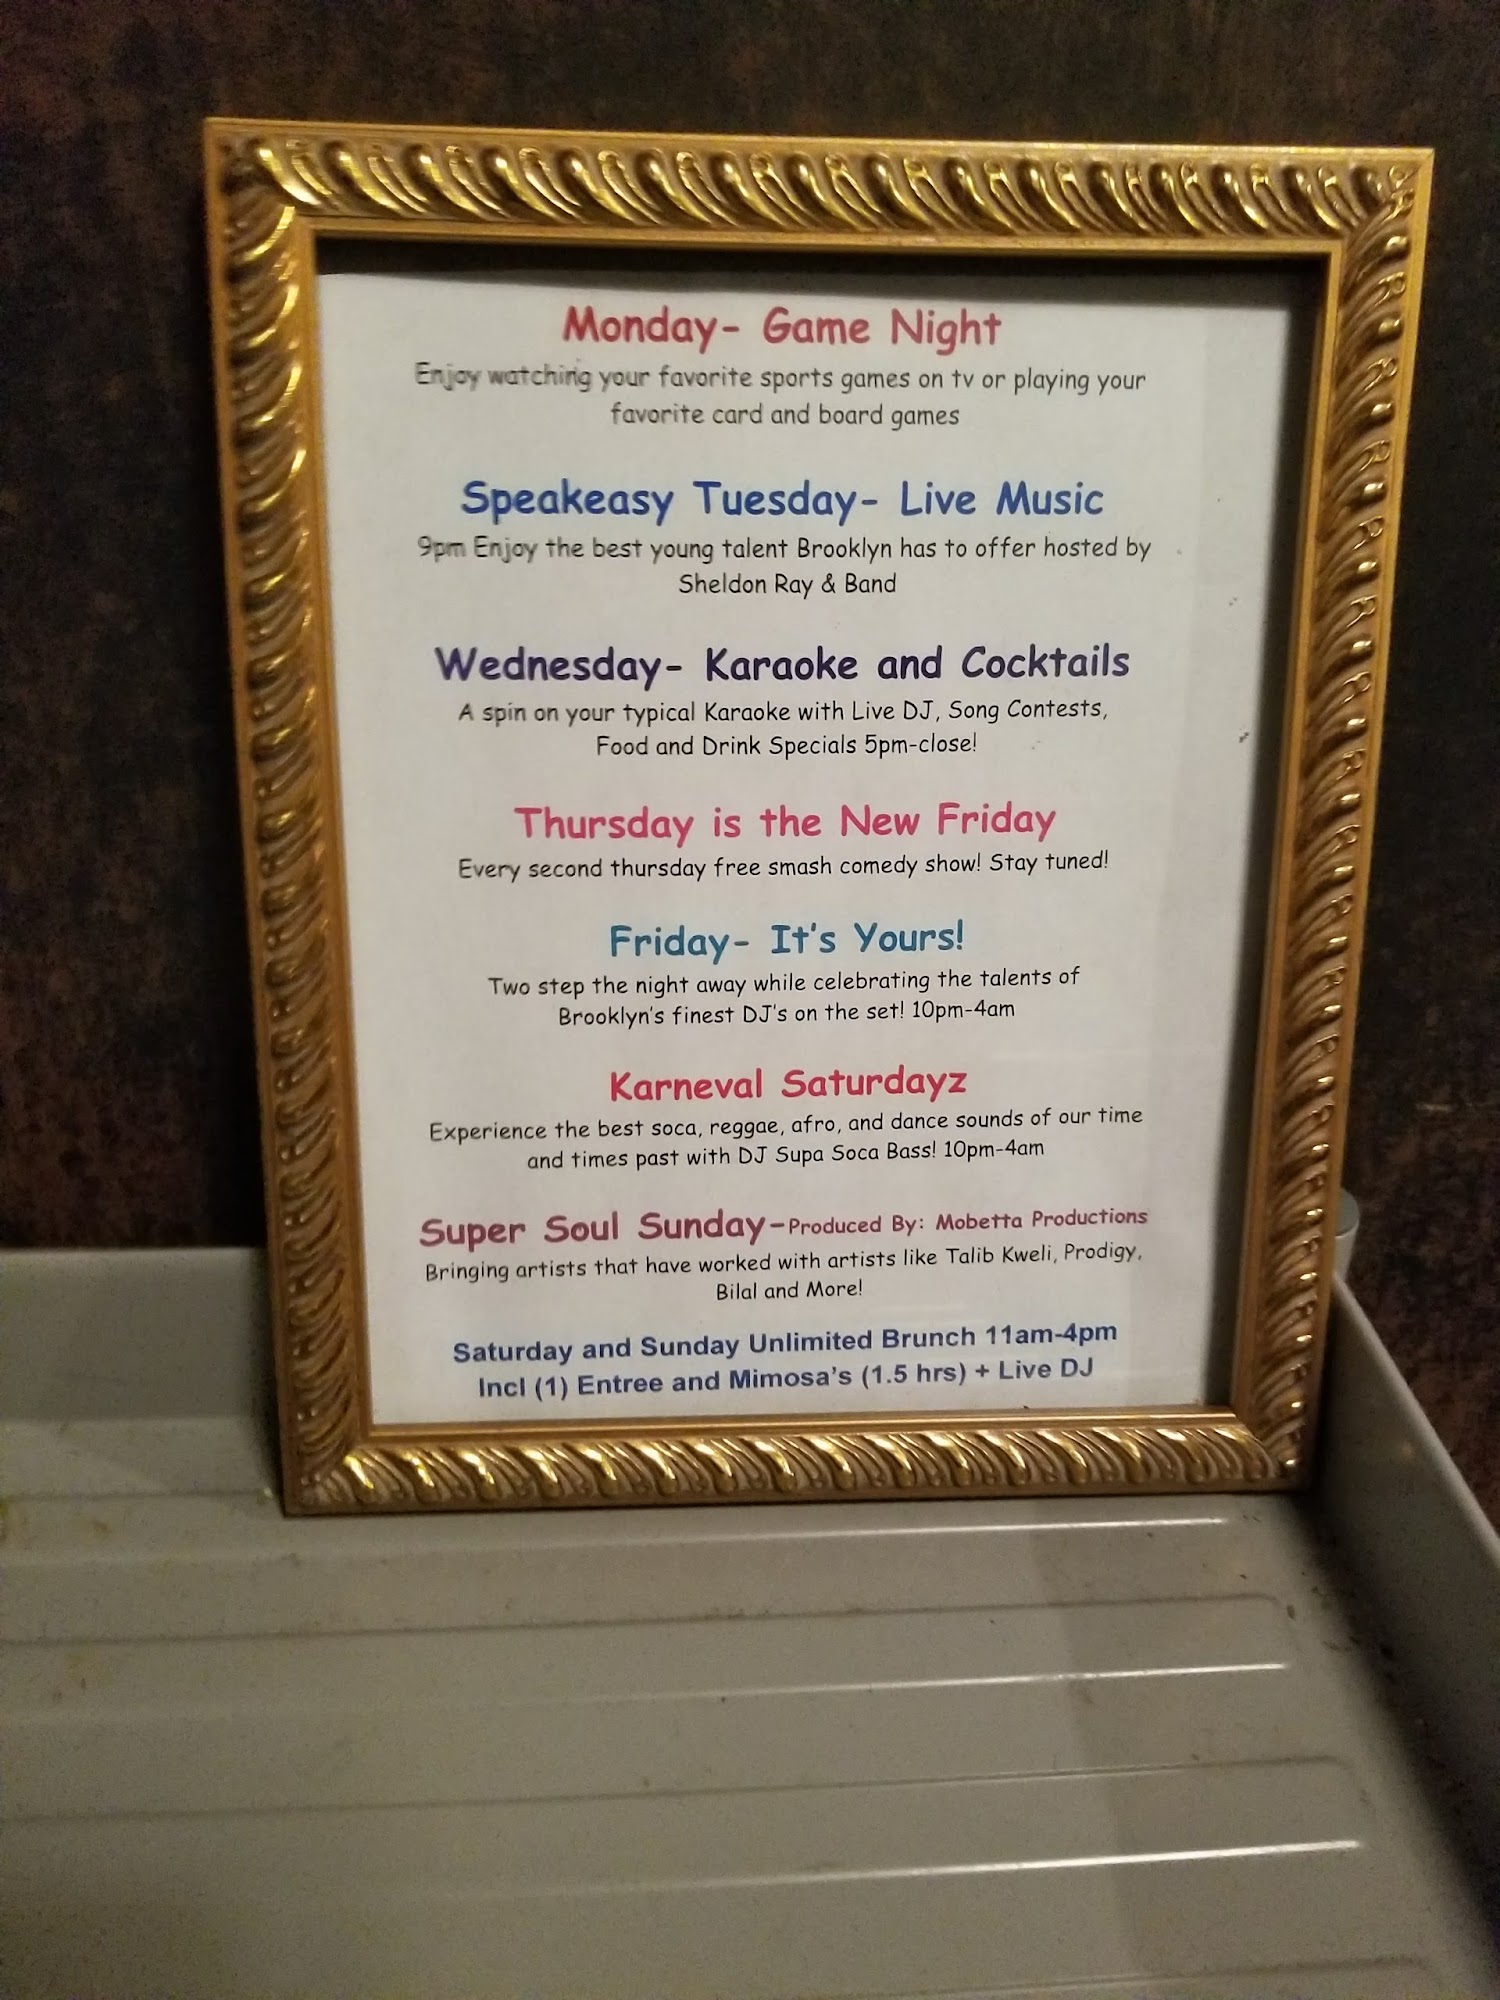 Monday- Game Night
Enjoy watching your favorite sports games on tv or playing your
favorite card and board games
Speakeasy Tuesday- Live Music
9pm Enjoy the best young talent Brooklyn has to offer hosted by
Sheldon Ray & Band
Wednesday- Karaoke and Cocktails
A spin on your typical Karaoke with Live DJ, Song Contests,
Food and Drink Specials 5pm-close!
Thursday is the New Friday
Every second thursday free smash comedy show! Stay tuned!
Friday- It's Yours!
Two step the night away while celebrating the talents of
Brooklyn's finest DJ's on the set! 10pm-4am
Karneval Saturdayz
Experience the best soca, reggae, afro, and dance sounds of our time
and times past with DJ Supa Soca Bass! 10pm-4am
Super Soul Sunday-Produced By: Mobetta Productions
Bringing artists that have worked with artists like Talib Kweli, Prodigy,
Bilal and More!
Saturday and Sunday Unlimited Brunch 11am-4pm
Incl (1) Entree and Mimosa's (1.5 hrs) + Live DJ